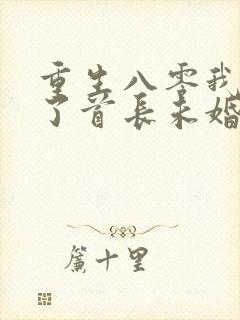 重生八零我
了首长未婚
簾十里